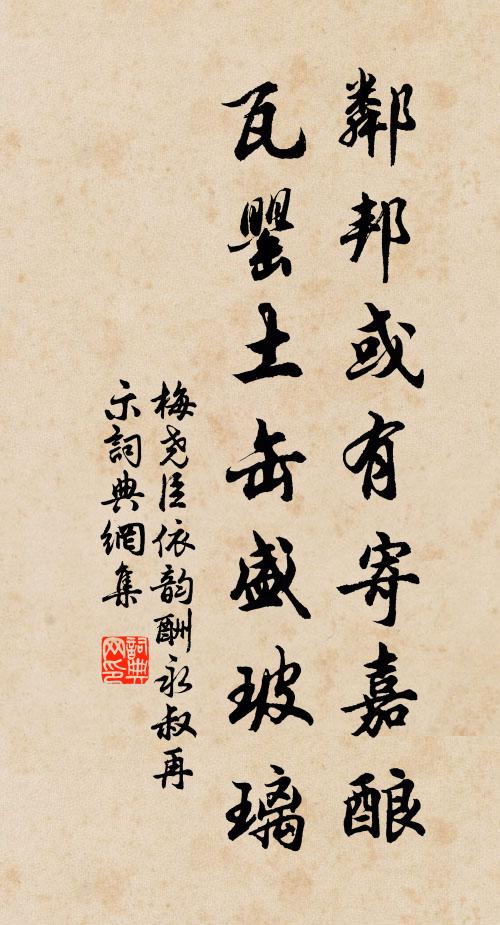 鄰邦或有寄嘉酿
瓦罂土缶盛玻璃
梅尧臣依韵酬永叔再
示詞典網集
詞典网印